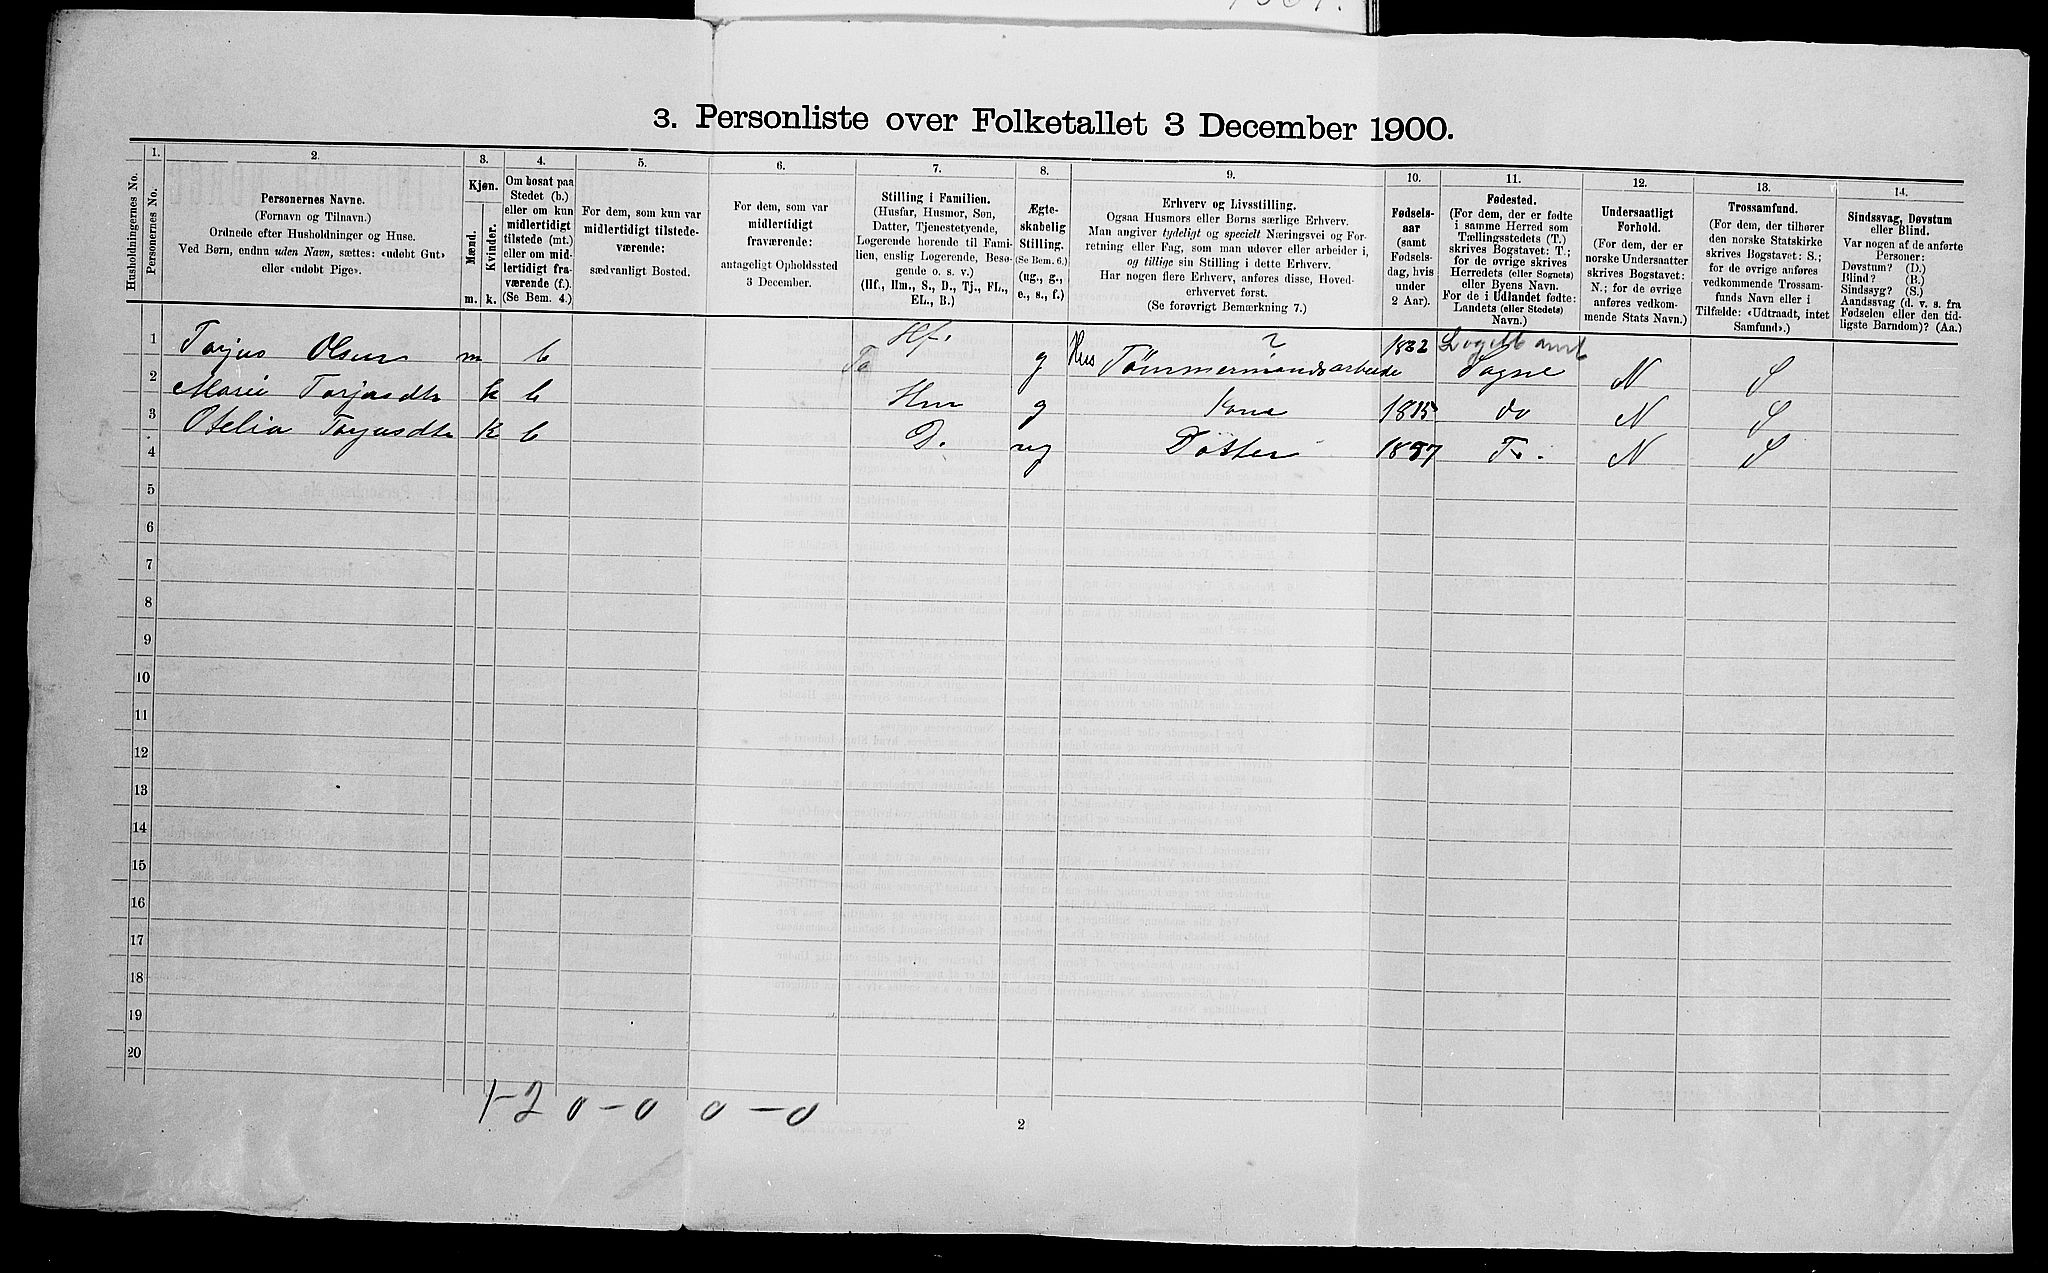 3. Personliste over Folketallet 3 December 1900.
Husholdningernes No.
1.
Personernes No.
2.
Personernes Navne.
(Fornavn og Tilnavn.)
Ordnede efter Husholdninger og Huse.
Ved Børn, endnu uden Navn, sættes: «udøbt Gut»
eller «udøbt Pige».
3.
Kjøn.
Mænd.
Kvinder.
m. k.
4.
Om bosat paa
Stedet (b.)
eller om kun
midlertidigt
tilstede (mt.)
eller om mid-
lertidigt fra-
værende (f.).
(Se Bem. 4.)
5.
For dem, som kun var
midlertidigt tilstede-
værende:
sædvanligt Bosted.
6.
For dem, som var
midlertidigt
fraværende:
antageligt Opholdssted
3 December.
7.
Stilling i Familien.
(Husfar, Husmor, Søn,
Datter, Tjenestetyende,
Logerende hørende til Fami-
lien, enslig Logerende, Besø-
gende o. s. v.)
(Hf., Hm., S., D., Tj., FL.,
EL., B.)
8.
Ægte-
skabelig
Stilling.
(Se Bem. 6.)
(ug., g.,
e., s., f.)
9.
Erhverv og Livsstilling.
Ogsaa Husmors eller Børns særlige Erhverv.
Man angiver tydeligt og specielt Næringsvei og For-
retning eller Fag, som man udøver eller arbeider i,
og tillige sin Stilling i dette Erhverv.
Har nogen flere Erhverv, anføres disse, Hoved-
erhvervet først.
(Se forøvrigt Bemærkning 7.)
10.
Fødsels-
aar
(samt
Fødsels-
dag, hvis
under
2 Aar).
11.
Fødested.
(For dem, der er fødte
i samme Herred som
Tællingsstedets (T.)
skrives Bogstavet: T.;
for de øvrige skrives
Herredets (eller Sognets)
eller Byens Navn.
For de i Udlandet fødte:
Landets (eller Stedets)
Navn.)
12.
Undersaatligt
Forhold.
(For dem, der er
norske Undersaatter
skrives Bogstavet:
N.; for de øvrige
anføres vedkom-
mende Stats Navn.)
13.
Trossamfund.
(For dem, der tilhører
den norske Statskirke
skrives Bogstavet: S.;
for de øvrige anføres
vedkommende Trossam-
funds Navn eller i
Tilfælde: «Udtraadt, intet
Samfund».)
14.
Sindssvag, Døvstum
eller Blind.
Var nogen af de anførte
Personer:
Døvstum? (D.)
Blind? (B.)
Sindssyg? (S.)
Aandssvag (d. v. s. fra
Fødselen eller den tid-
ligste Barndom)? (Aa.)
1 Torjus Olsen m b Hf. g Hus Tömmermandsarbeide 1832 Sogne N S
2 Marie Torjusdtr k b Hm g Kone do N S
3 Otelia Torjusdtr K b D. ug Datter T. N S
4
5
6
7
8
9
10
11
12
13
14
15
16
17
18
19
20
1-2 0-0 0-0
2